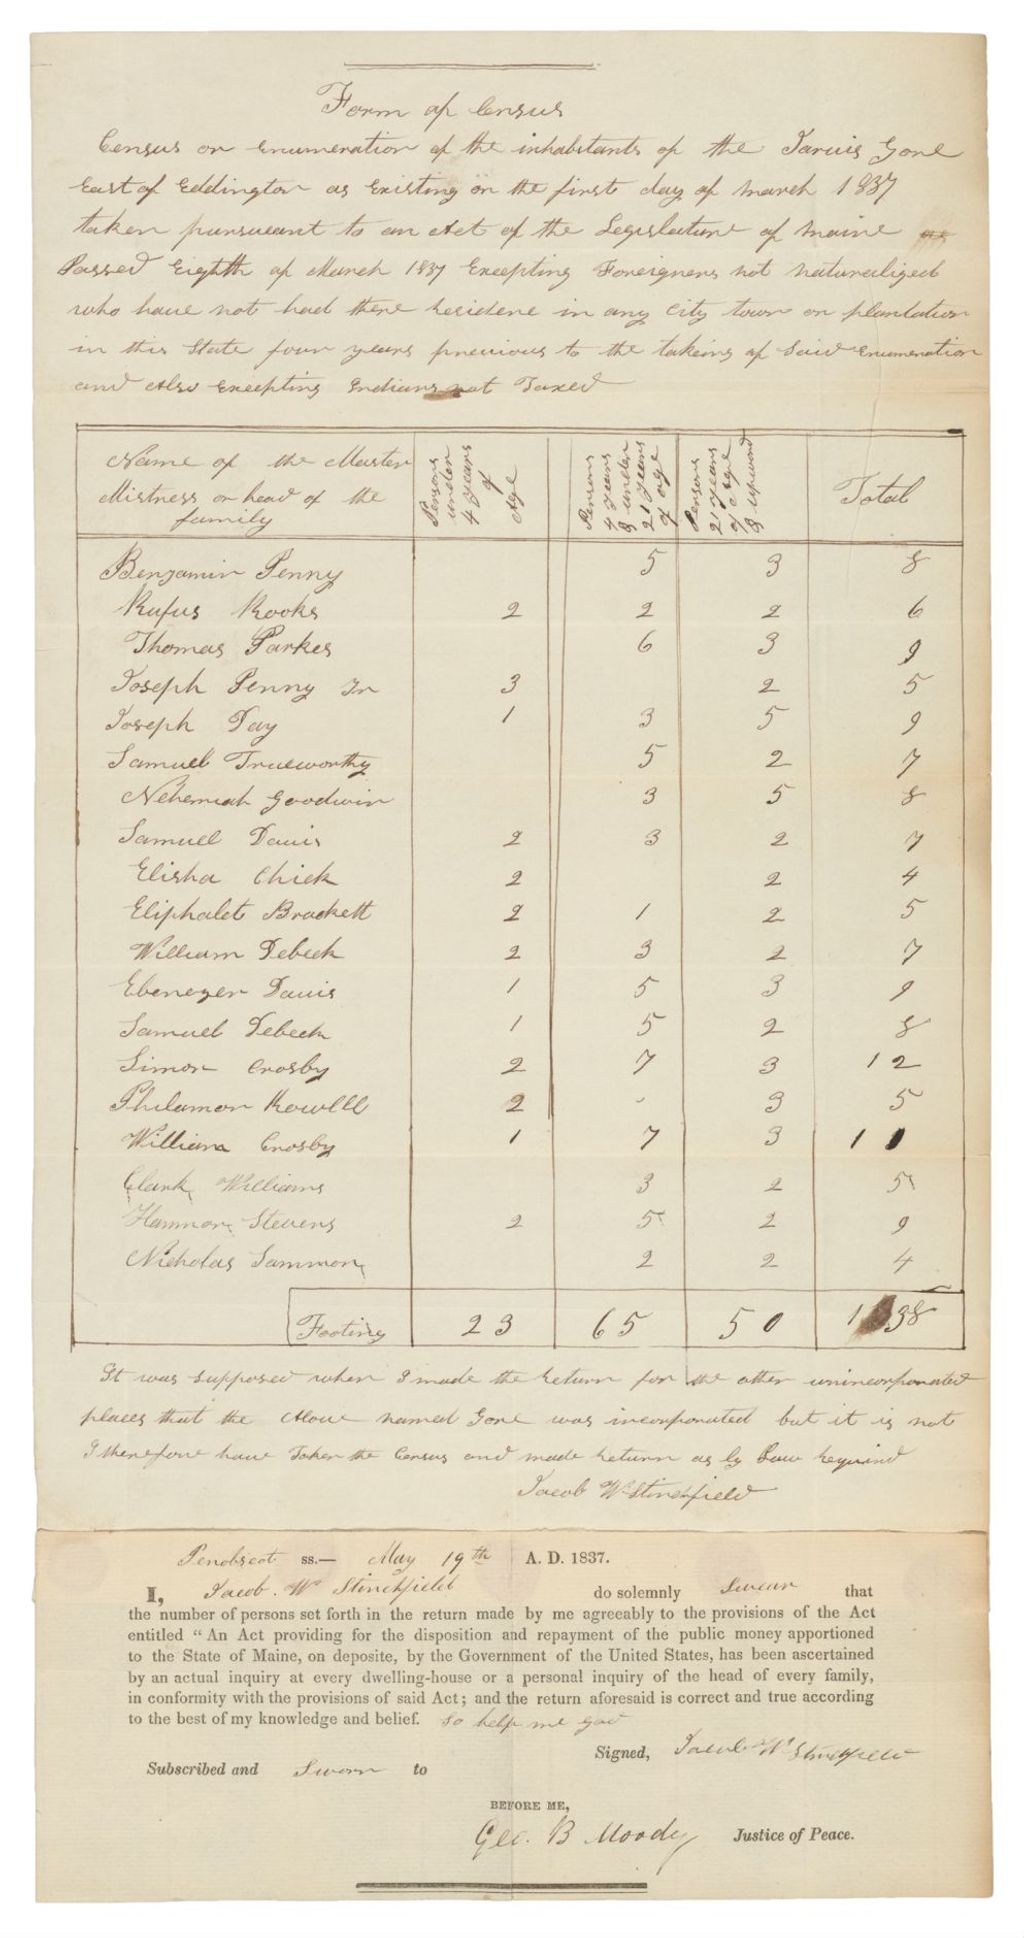 Form of Census
Census or Enumeration of the inhabitants of the Jarvis Gore
East of Eddington as Existing on the first day of March 1837
taken pursueant to an Act of the Legislature of Maine
Passed Eighth of March 1837 Excepting Foreigners not naturalized
who have not had there Residene in any City town or plantation
in this State four years previous to the takeing of Said Enumeration
and Also Excepting Indians not Taxed
Name of the Master Mistress or head of the family | Persons under 4 years of Age | Persons 4 years & under 21 years of age | Persons 21 years of Age & upward | Total
Benjamin Penny 5 3 8
Rufus Rooks 2 2 2 6
Thomas Parkes 6 3 9
Joseph Penny Jr 3 2 5
Joseph Day 1 3 5 9
Samuel Trueworthy 5 2 7
Nehemiah Goodwin 3 5 8
Samuel Davis 2 3 2 7
Elisha Chick 2 2 4
Eliphalet Brackett 2 1 2 5
William Debeck 2 3 2 7
Ebenezer Davis 1 5 3 9
Samuel Debeck 1 5 2 8
Simon Crosby 2 7 3 12
Philamon Rowell 2 - 3 5
William Crosby 1 7 3 11
Clark Williams 3 2 5
Hammon Stevens 2 5 2 9
Nicholas Sammon 2 2 4
Footing 23 65 50 138
It was supposed when I made the Return for the other unincorporated
places that the Above named Gore was incorporated but it is not
I therefore have Taken the Census and made Return as by Law Required
Jacob W Stinchfield
Penobscot ss.— May 19th A. D. 1837.
I, Jacob. W. Stinchfield do solemnly Swear that
the number of persons set forth in the return made by me agreeably to the provisions of the Act
entitled "An Act providing for the disposition and repayment of the public money apportioned
to the State of Maine, on deposite, by the Government of the United States, has been ascertained
by an actual inquiry at every dwelling-house or a personal inquiry of the head of every family,
in conformity with the provisions of said Act; and the return aforesaid is correct and true according
to the best of my knowledge and belief. So help me god
Signed, Jacob W Stinchfield
Subscribed and Sworn to
BEFORE ME,
Geo. B Moody Justice of Peace.